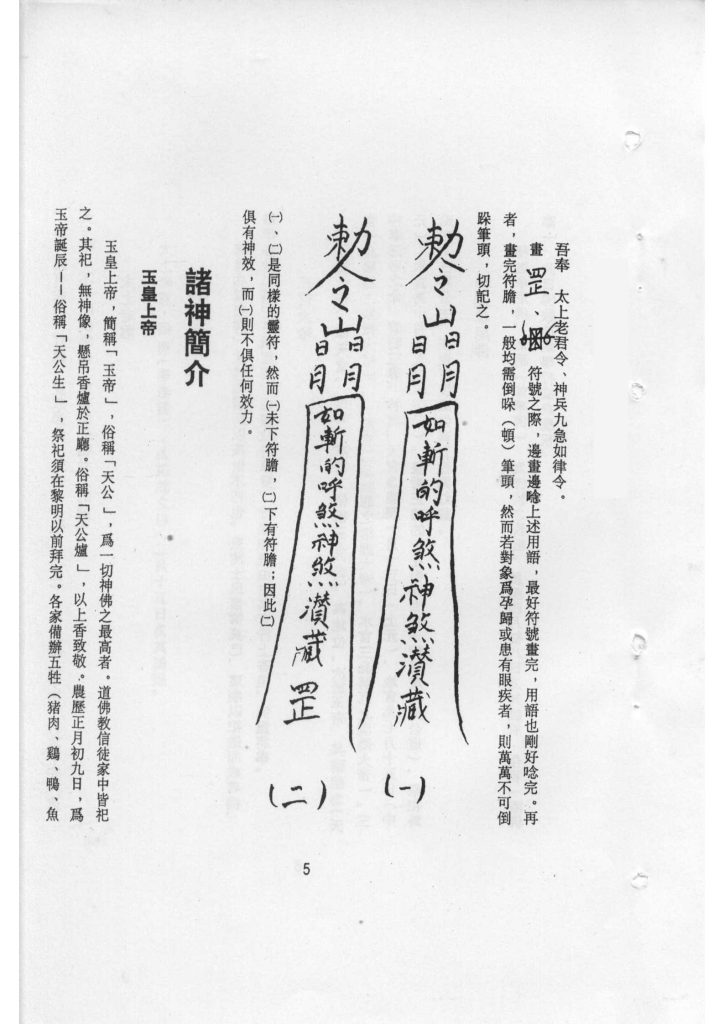 吾奉　太上老君令、神兵九急如律令。
畫 罡 、 符號之際，邊畫邊唸上述用語，最好符號畫完，用語也剛好唸完。再
者，畫完符膽，一般均需倒哚（頓）筆頭，然而若對象爲孕歸或患有眼疾者，則萬萬不可倒
跺筆頭，切記之。
勅令
山日日
月月
如斬的呼煞神煞潸藏
（一）
勅令
山日日
月月
如斬的呼煞神煞潸藏罡
（二）
㈠、㈡是同樣的靈符，然而㈠未下符膽，㈡下有符膽；因此㈡
俱有神效，而㈠則不俱任何效力。
諸神簡介
玉皇上帝
玉皇上帝，簡稱「玉帝」，俗稱「天公」，爲一切神佛之最高者。道佛教信徒家中皆祀
之。其祀，無神像，懸吊香爐於正廳。俗稱「天公爐」，以上香致敬。農歷正月初九日，爲
玉帝誕辰——俗稱「天公生」，祭祀須在黎明以前拜完。各家備辦五牲（猪肉、鷄、鴨、魚
5